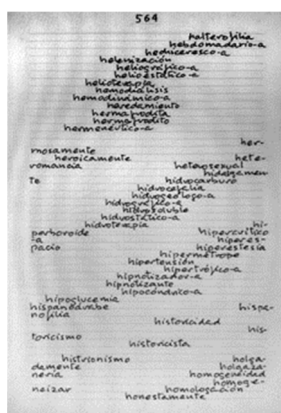 564
halterofilia
hebdomadario-a
helenización
heliográfico-a
helioestático-a
helioterapia
hemodiálisis
hemodinámico-a
heredamiento
hermafrodita
hermafrodito
hermenéutico-a
her-
mosamente
heroicamente hete-
romancia heterosexual
hidalgamen
te hidrocarburo
hidrocefalia
hidrogeólogo-a
hidrográfico-a
hidrosoluble
hidrostático-a
hidroterapia hi-
perboroide hipercrítico
-a hiperes-
pacio hiperestesia
hipermétrope
hipertensión
hipertrófico-a
hipnotizador-a
hipnotizante
hipocondríaco-a
hipoglucemia
hispanoárabe hispa-
nofilia
historicidad
his-
toricismo
historicista
histrionismo holga-
damente holgaza-
nería homogeneidad
homoge-
neizar homologación
honestamente